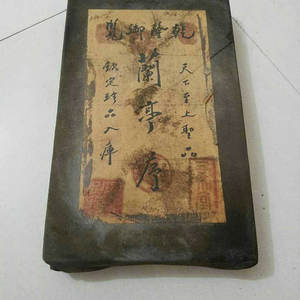 乾隆御覽
天下至上聖品
蘭亭序
欽定珍品入庫